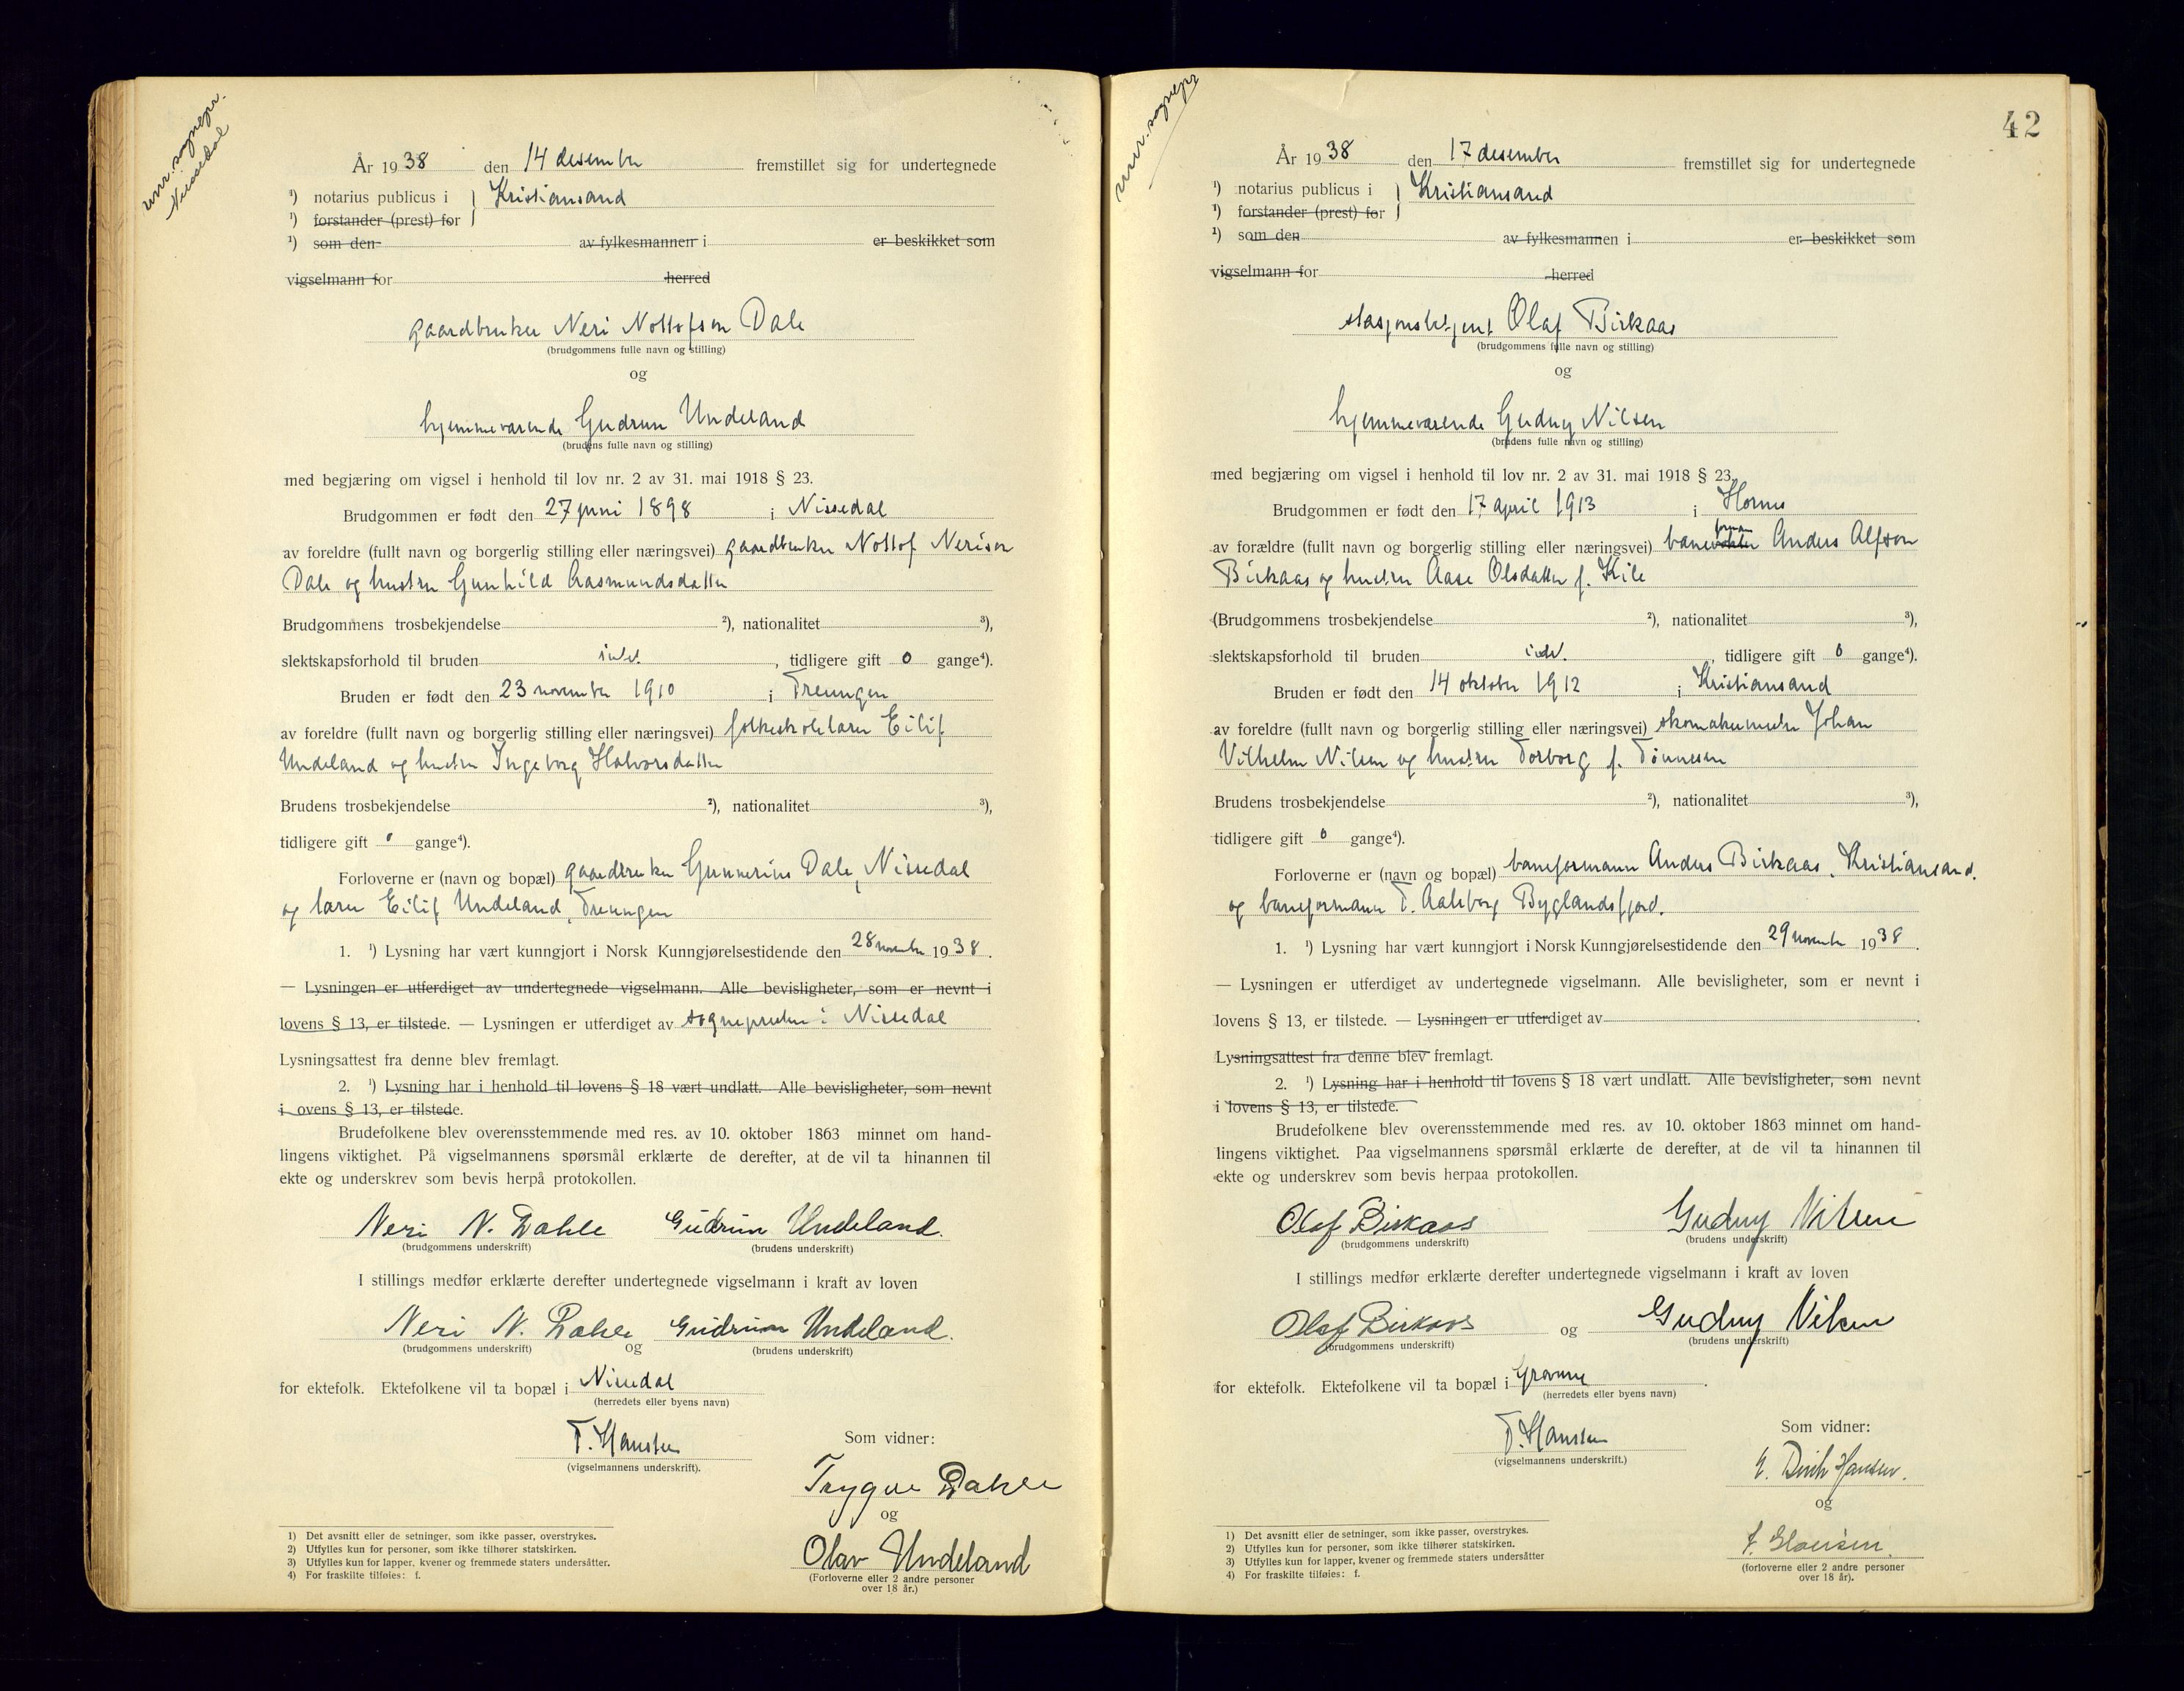 unr. sognepr.
Nissedal
År 1938 den 14 desember fremstillet sig for undertegnede
¹) notarius publicus i } Kristiansand
¹) forstander (prest) for
¹) som den av fylkesmannen i er beskikket som
vigselmann for herred
gaardbruker Neri Nottofson Dale
(brudgommens fulle navn og stilling)
og
hjemmeværende Gudrun Undeland
(brudens fulle navn og stilling)
med begjæring om vigsel i henhold til lov nr. 2 av 31. mai 1918 § 23.
Brudgommen er født den 27 juni 1898 i Nissedal
av foreldre (fullt navn og borgerlig stilling eller næringsvei) gaardbruker Nottof Nerison
Dale og hustru Gunhild Aasmundsdatter
Brudgommens trosbekjendelse ²), nationalitet ³),
slektskapsforhold til bruden intet , tidligere gift 0 gange⁴).
Bruden er født den 23 november 1910 i Treungen
av foreldre (fullt navn og borgerlig stilling eller næringsvei) folkeskolelærer Eilif
Undeland og hustru Ingeborg Halvorsdatter
Brudens trosbekjendelse ²), nationalitet ³),
tidligere gift 0 gange⁴).
Forloverne er (navn og bopæl) gaardbruker Gunnerius Dale, Nissedal
og lærer Eilif Undeland, Treungen
1. ¹) Lysning har vært kunngjort i Norsk Kunngjørelsestidende den 28 november 1938.
— Lysningen er utferdiget av undertegnede vigselmann. Alle bevisligheter, som er nevnt i
lovens § 13, er tilstede. — Lysningen er utferdiget av sognepresten i Nissedal
Lysningsattest fra denne blev fremlagt.
2. ¹) Lysning har i henhold til lovens § 18 vært undlatt. Alle bevisligheter, som nevnt
i ovens § 13, er tilstede.
Brudefolkene blev overensstemmende med res. av 10. oktober 1863 minnet om hand-
lingens viktighet. På vigselmannens spørsmål erklærte de derefter, at de vil ta hinannen til
ekte og underskrev som bevis herpå protokollen.
Neri N. Dahle Gudrun Undeland.
(brudgommens underskrift) (brudens underskrift)
I stillings medfør erklærte derefter undertegnede vigselmann i kraft av loven
Neri N. Dahle og Gudrun Undeland.
(brudgommens underskrift) (brudens underskrift)
for ektefolk. Ektefolkene vil ta bopæl i Nissedal
(herredets eller byens navn)
T. Hansten
(vigselmannens underskrift).
Som vidner:
Trygve Dahle
og
Olav Undeland
(Forloverne eller 2 andre personer
over 18 år.)
1) Det avsnitt eller de setninger, som ikke passer, overstrykes.
2) Utfylles kun for personer, som ikke tilhører statskirken.
3) Utfylles kun for lapper, kvener og fremmede staters undersåtter.
4) For fraskilte tilføies: f.
unr. sognepr
42
År 1938 den 17 desember fremstillet sig for undertegnede
¹) notarius publicus i } Kristiansand
¹) forstander (prest) for
¹) som den av fylkesmannen i er beskikket som
vigselmann for herred
stasjonsbetjent Olaf Birkaas
(brudgommens fulle navn og stilling)
og
hjemmeværende Gudny Nilsen
(brudens fulle navn og stilling)
med begjæring om vigsel i henhold til lov nr. 2 av 31. mai 1918 § 23.
Brudgommen er født den 17 april 1913 i Hornnes
av forældre (fullt navn og borgerlig stilling eller næringsvei) banevokter forman Anders Alfson
Birkaas og hustru Aase Olsdatter f. Kile
(Brudgommens trosbekjendelse ²), nationalitet ³),
slektskapsforhold til bruden intet , tidligere gift 0 gange⁴).
Bruden er født den 14 oktober 1912 i Kristiansand
av foreldre (fullt navn og borgerlig stilling eller næringsvei) skomakermester Johan
Vilhelm Nilsen og hustru Torborg f. Tønnesen
Brudens trosbekjendelse ²), nationalitet ³),
tidligere gift 0 gange⁴).
Forloverne er (navn og bopæl) baneformann Anders Birkaas, Kristiansand.
og baneformann T. Aaleborg Byglandsfjord.
1. ¹) Lysning har vært kunngjort i Norsk Kunngjørelsestidende den 29 november 1938.
— Lysningen er utferdiget av undertegnede vigselmann. Alle bevisligheter, som er nevnt i
lovens § 13, er tilstede. — Lysningen er utferdiget av .
Lysningsattest fra denne blev fremlagt.
2. ¹) Lysning har i henhold til lovens § 18 vært undlatt. Alle bevisligheter, som nevnt
i lovens § 13, er tilstede.
Brudefolkene blev overensstemmende med res. av 10. oktober 1863 minnet om hand-
lingens viktighet. Paa vigselmannens spørsmål erklærte de derefter, at de vil ta hinannen til
ekte og underskrev som bevis herpaa protokollen.
Olaf Birkaas Gudny Nilsen
(brudgommens underskrift) (brudens underskrift)
I stillings medfør erklærte derefter undertegnede vigselmann i kraft av loven
Olaf Birkaas og Gudny Nilsen
(brudgommens underskrift) (brudens underskrift)
for ektefolk. Ektefolkene vil ta bopæl i Grovane .
(herredets eller byens navn)
T. Hansten
(vigselmannens underskrift.)
Som vidner:
Hansen.
og
(forloverne eller 2 andre personer
over 18 år).
1) Det avsnitt eller de setninger, som ikke passer, overstrykes.
2) Utfylles kun for personer, som ikke tilhører statskirken.
3) Utfylles kun for lapper, kvener og fremmede staters undersåtter
4) For fraskilte tilføies: f.